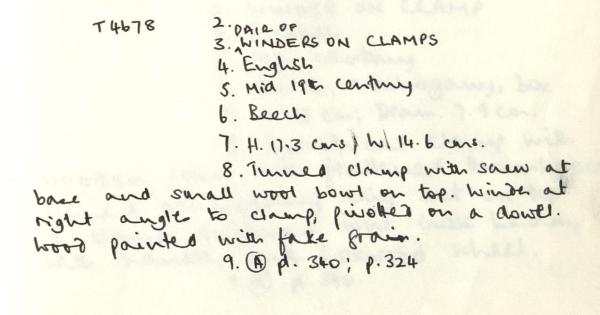 T4678 2. PAIR OF
3. WINDERS ON CLAMPS
4. English
5. Mid 19th Century
6. Beech
7. H. 17.3 cms / W 14.6 cms.
8. Turned clamp with screw at
base and small wool bowl on top. Winder at
right angles to clamp, pivoted on a dowel.
Wood painted with fake grain.
9. Ⓐ pl. 340; p.324